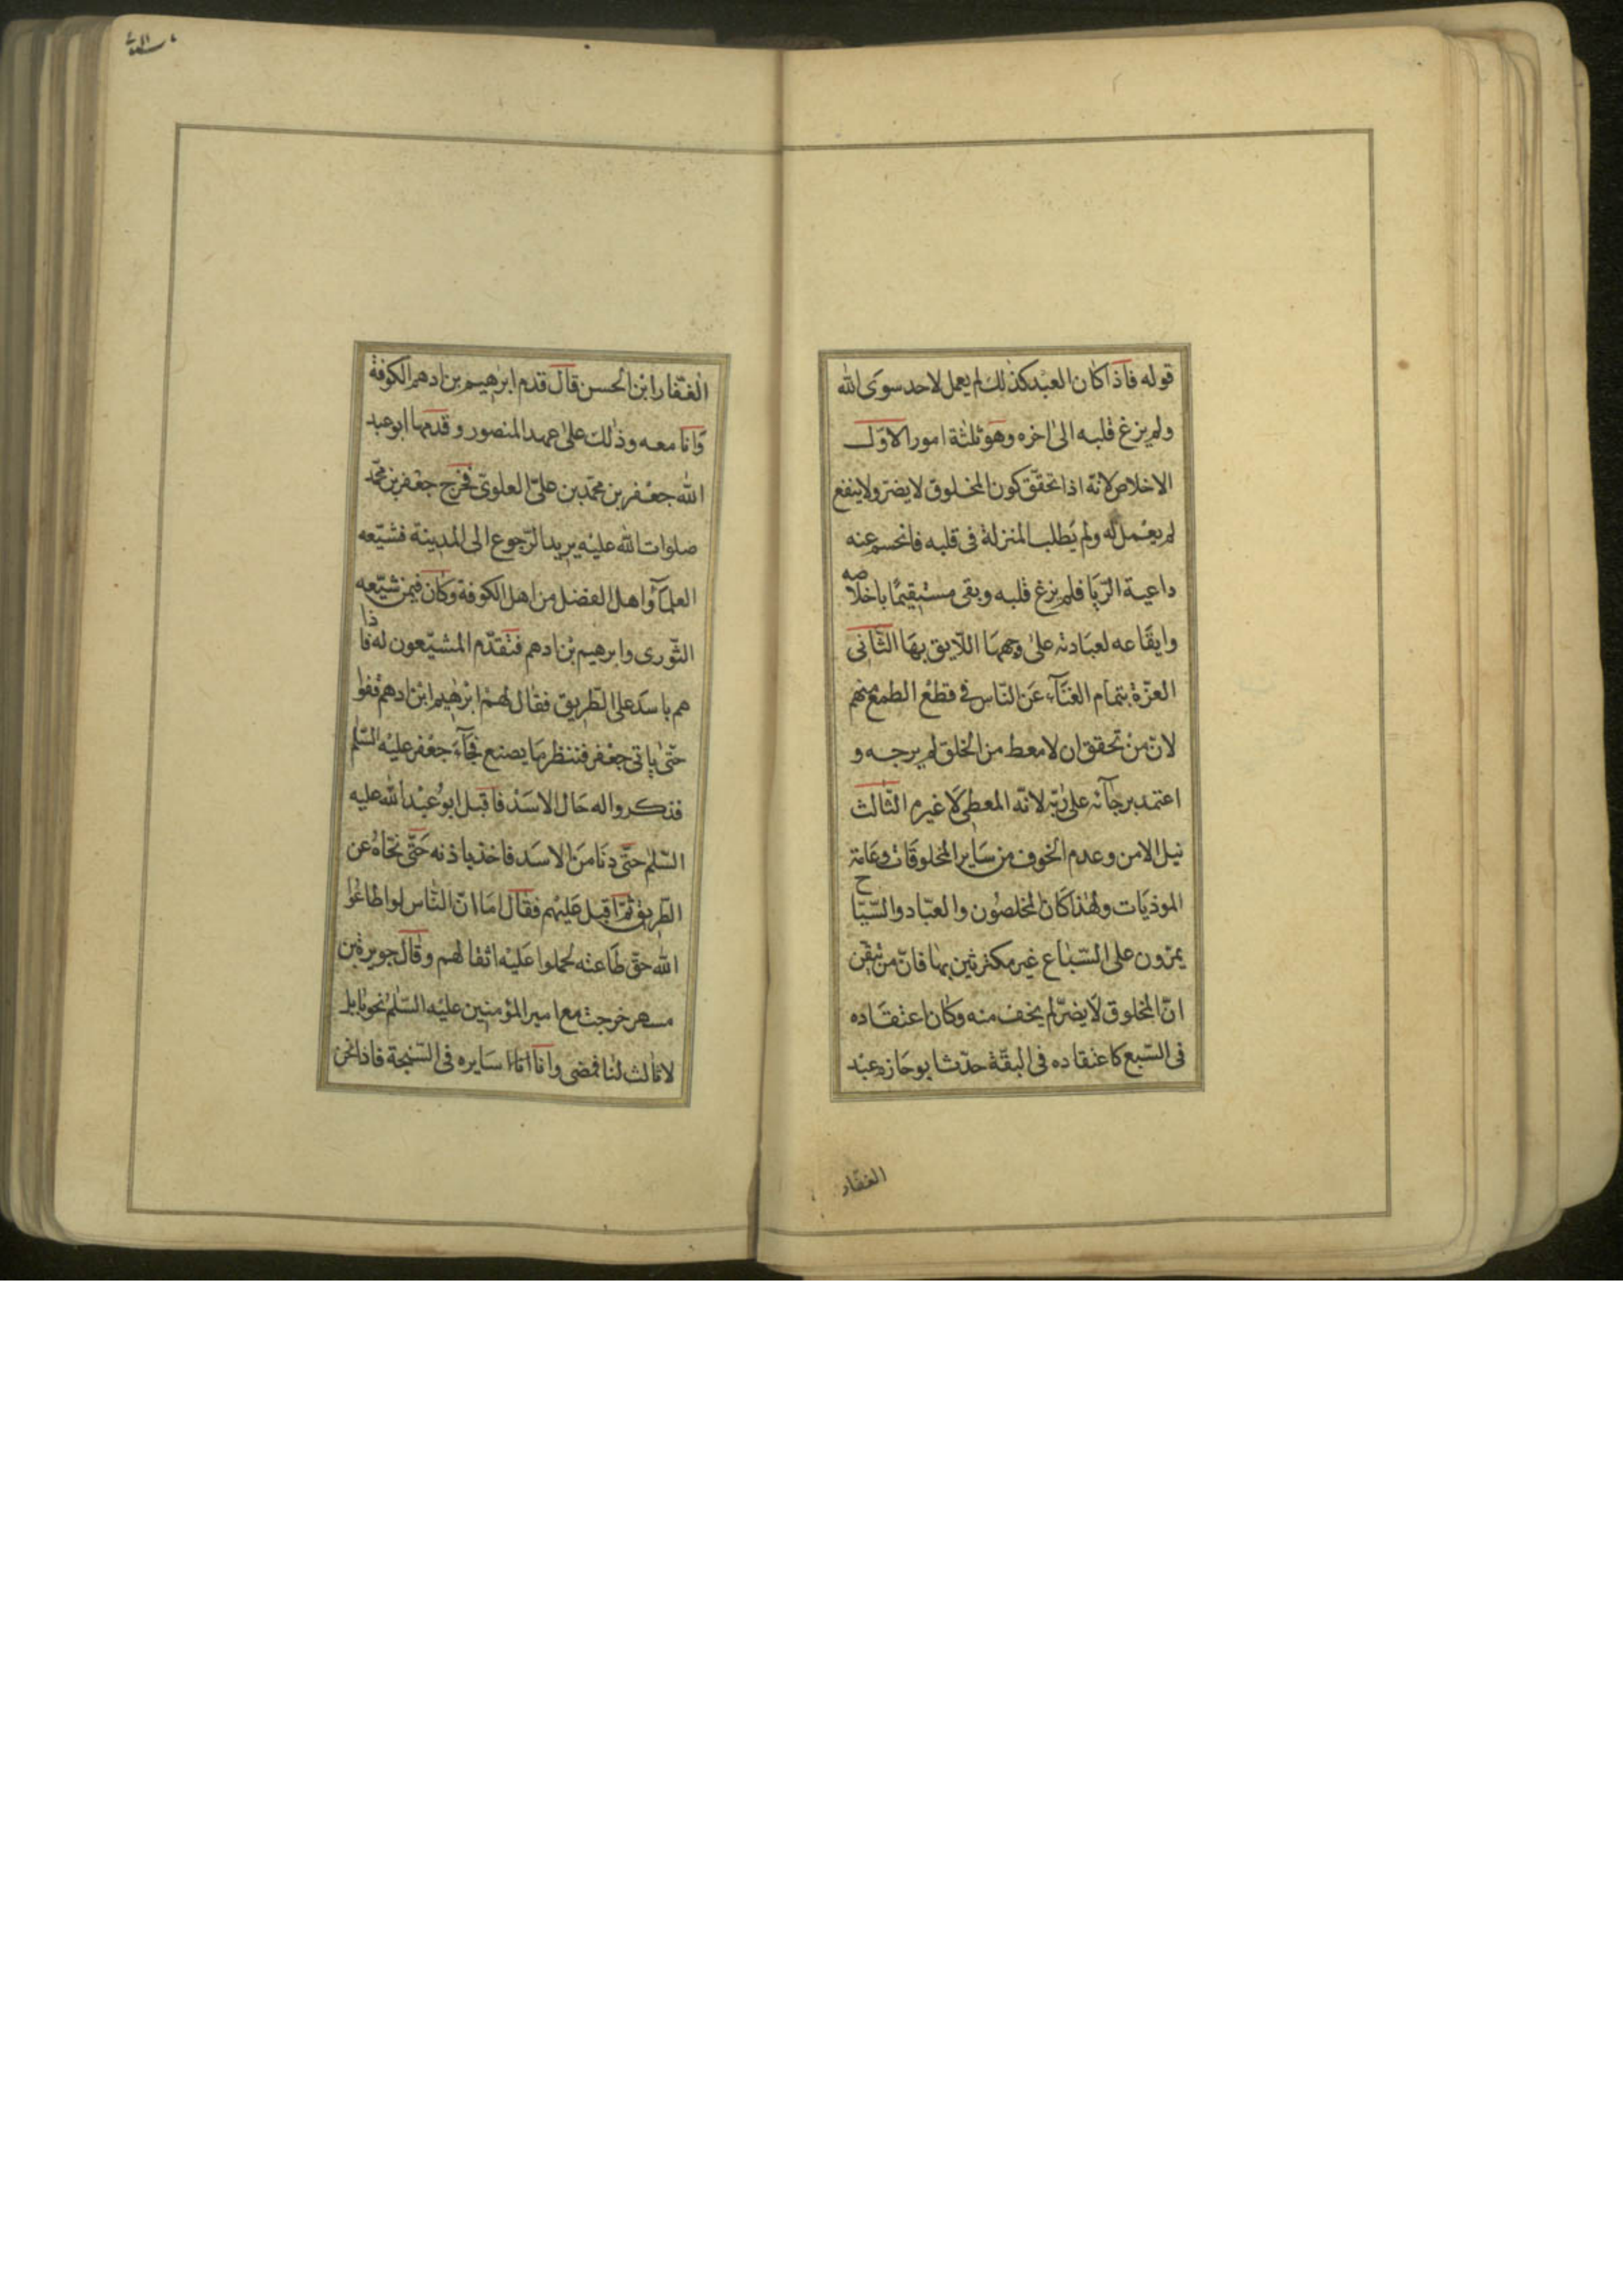 قوله فاذا كان العبد كذلك لم يعمل لاحد سوى الله
ولم يزغ قلبه الى اخره وهو ثلثة امور الاوّل
الاخلاص لانّه اذا تحقّق كون المخلوق لا يضرّ ولا ينفع
لم يعمل له ولم يطلب المنزلة فى قلبه فانحسم عنه
داعية الرّيا فلم يزغ قلبه وبقى مستقيمًا باخلاصه
وايقاعه لعبادته على وجهها اللّايق بها الثّانى
العزّة بتمام الغنآء عن النّاس فى قطع الطمع منهم
لانّ من تحقق ان لا معط من الخلق لم يرجه و
اعتمد برجآئه على ربّه لانّه المعطى لا غيره الثّالث
نيل الامن وعدم الخوف من ساير المخلوقات وعامّة
الموذيات ولهذا كان المخلصون والعبّاد والسّيّاح
يمرّون على السّباع غير مكترثين بها فانّ من تيقّن
انّ المخلوق لا يضرّ لم يخف منه وكان اعتقاده
فى السّبع كاعتقاده فى البقّة حدّث ابو حازم عبد
الغفّار
الغفّار ابن الحسن قال قدم ابرهيم بن ادهم الكوفة
وانا معه وذلك على عهد المنصور وقدمها ابو عبد
الله جعفر بن محمّد بن علىّ العلوىّ فخرج جعفر بن محمّد
صلوات الله عليه يريد الرّجوع الى المدينة فشيّعه
العلمآء واهل الفضل من اهل الكوفة وكان فيمن شيّعه
الثّورى وابرهيم بن ادهم فتقدّم المشيّعون له فاذا
هم باسد على الطّريق فقال لهم ابرهيم ابن ادهم قفوا
حتّى ياتى جعفر فننظر ما يصنع فجآء جعفر عليه السّلم
فذكروا له حال الاسد فاقبل ابو عبد الله عليه
السّلم حتّى دنا من الاسد فاخذ باذنه حتّى نحّاه عن
الطّريق ثمّ اقبل عليهم فقال اما انّ النّاس لو اطاعوا
الله حقّ طاعته لحملوا عليه اثقالهم وقال جويرة بن
مسهر خرجت مع امير المؤمنين عليه السّلم نحو بابل
لا ثالث لنا فمضى وانا اسايره فى السّبخة فاذا نحن